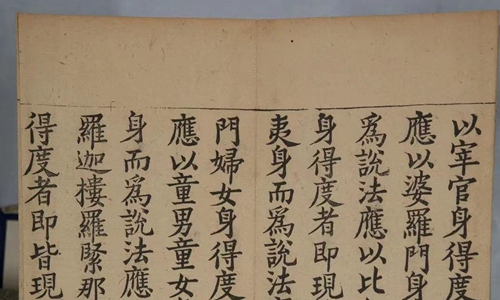 以宰官身得度
應以婆羅門身
為說法應以比
身得度者即現
夷身而為說法
門婦女身得度
應以童男童女
身而為說法應
羅迦樓羅緊那
得度者即皆現